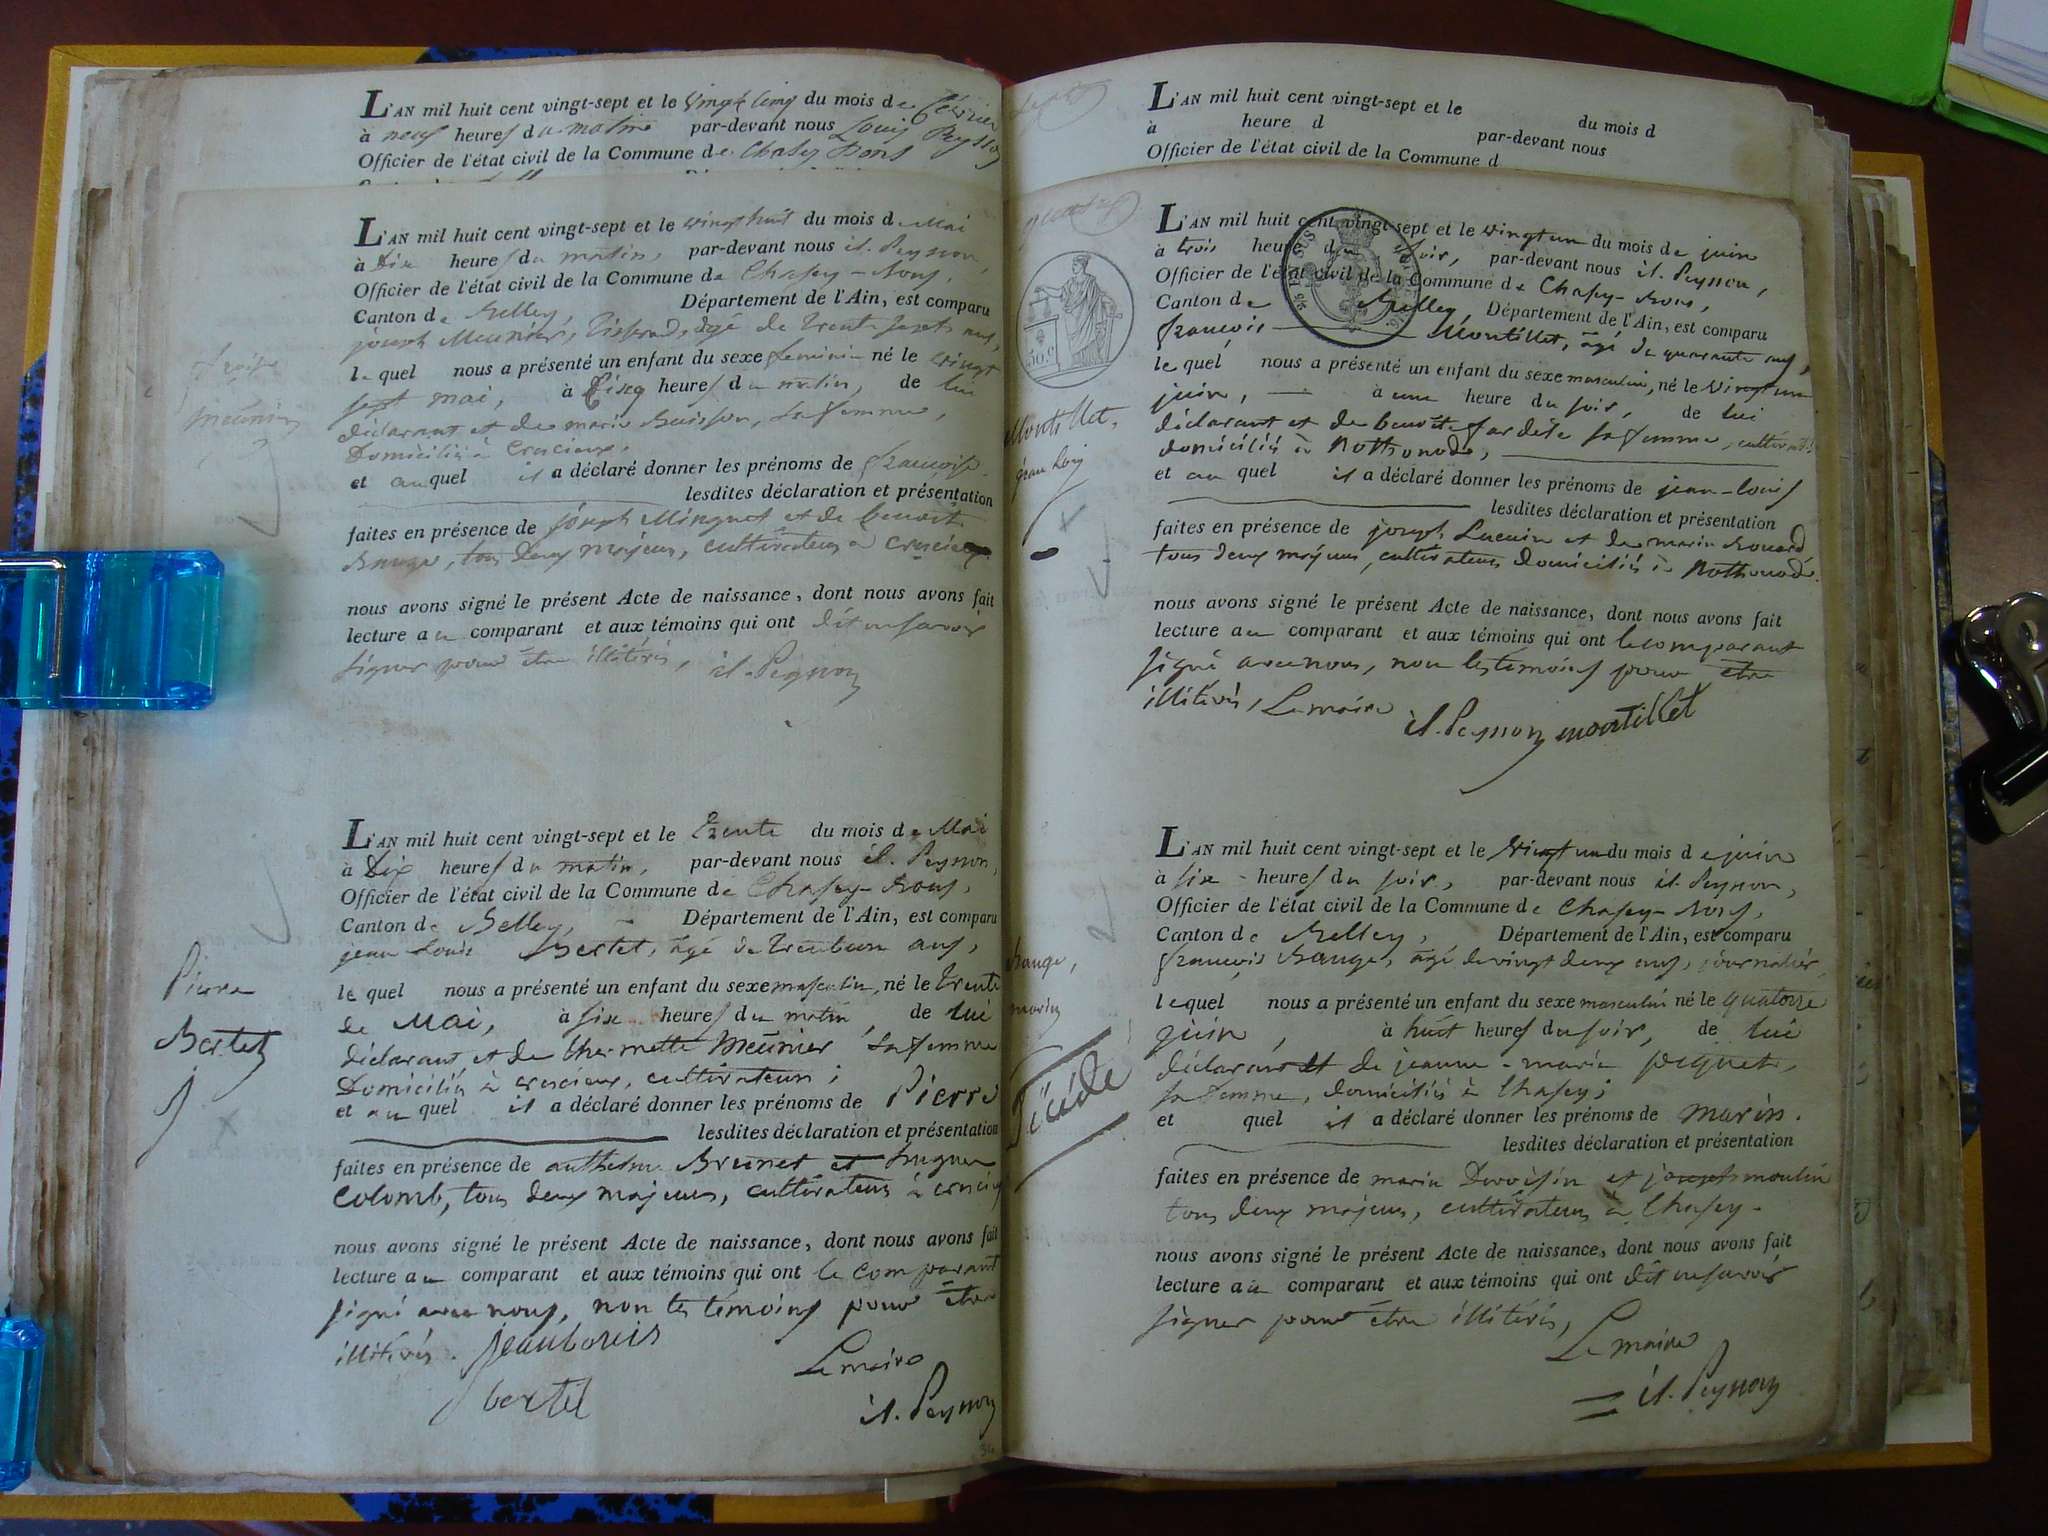 L'AN mil huit cent vingt-sept et le vingt cinq du mois de février
à neuf heures du matin par-devant nous Louis Peysson
Officier de l'état civil de la Commune de Chasey Bons
L'AN mil huit cent vingt-sept et le vingt huit du mois de Mai
à Dix heures du matin, par-devant nous Peysson,
Officier de l'état civil de la Commune de Chasey-Bons,
Canton de Belley, Département de l'Ain, est comparu
joseph Meunier, Tisserand, âgé de trente sept ans,
le quel nous a présenté un enfant du sexe feminin né le vingt
sept mai, à Cinq heures du matin, de lui
déclarant et de marie Buisson, sa femme,
Domiciliés à Crescieux,
et au quel il a déclaré donner les prénoms de françoise
lesdites déclaration et présentation
faites en présence de joseph Minguet et de benoit
Bauge, tous deux majeurs, cultivateurs à crescieux
nous avons signé le présent Acte de naissance, dont nous avons fait
lecture au comparant et aux témoins qui ont dit ne savoir
signer pour être illitérés, Peysson
meunier
L'AN mil huit cent vingt-sept et le Trente du mois de Mai
à Dix heures du matin, par-devant nous Peysson,
Officier de l'état civil de la Commune de Chasey-Bons,
Canton de Belley, Département de l'Ain, est comparu
jean Louis Bertet, âgé de trente un ans,
Pierre
le quel nous a présenté un enfant du sexe masculin, né le trente
de Mai, à six heures du matin, de lui
Bertet
déclarant et de meunier sa femme
Domiciliés à crescieux, cultivateurs;
et au quel il a déclaré donner les prénoms de Pierre
lesdites déclaration et présentation
faites en présence de anthelme Brunet et
Colomb, tous deux majeurs, cultivateurs à
nous avons signé le présent Acte de naissance, dont nous avons fait
lecture au comparant et aux témoins qui ont le comparant
signé avec nous, non les témoins pour être
illitérés. jean Louis
Le maire
bertet
Peysson
L'AN mil huit cent vingt-sept et le du mois d
à heure d par-devant nous
Officier de l'état civil de la Commune d
L'AN mil huit cent vingt-sept et le vingt un du mois de juin
à trois heures du soir, par-devant nous Peysson,
Officier de l'état civil de la Commune de Chasey-Bons,
Canton de Belley, Département de l'Ain, est comparu
françois Montillet, âgé de quarante ans,
50 c
le quel nous a présenté un enfant du sexe masculin, né le vingt un
juin, à une heure du soir, de lui
Montillet,
déclarant et de benoite sa femme, cultivateurs
jean Louis
domiciliés à Rothonod,
et au quel il a déclaré donner les prénoms de jean-louis
lesdites déclaration et présentation
faites en présence de joseph et de marin
tous deux majeurs, cultivateurs domiciliés à Rothonod.
nous avons signé le présent Acte de naissance, dont nous avons fait
lecture au comparant et aux témoins qui ont le comparant
signé avec nous, non les témoins pour être
illitérés, Le maire
Peysson montillet
L'AN mil huit cent vingt-sept et le vingt un du mois de juin
à six heures du soir, par-devant nous Peysson,
Officier de l'état civil de la Commune de Chasey-Bons,
Canton de Belley, Département de l'Ain, est comparu
françois Bauge, âgé de vingt deux ans, journalier,
Bauge,
marin
lequel nous a présenté un enfant du sexe masculin né le quatorze
juin, à huit heures du soir, de lui
déclarant et de jeanne-marie piquet,
Décédé
sa femme, domiciliés à Chasey;
et quel il a déclaré donner les prénoms de marin.
lesdites déclaration et présentation
faites en présence de marin et joseph moulin
tous deux majeurs, cultivateurs à Chasey.
nous avons signé le présent Acte de naissance, dont nous avons fait
lecture au comparant et aux témoins qui ont dit ne savoir
signer pour être illitérés,
Le maire
Peysson